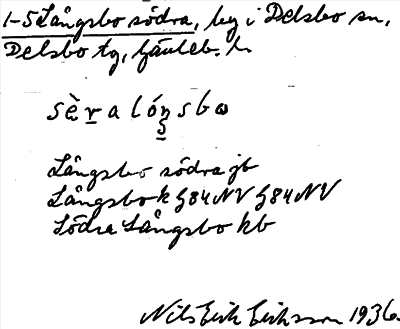 1-5 Långsbo södra, by i Delsbo sn,
Delsbo tg, Gävleb. l.
sè̱ṟa lóṉsbω
Långsbo södra jb
Långsbo k G84NV G84NV
Södra Långsbo kb
Nils Erik Eriksson 1936.